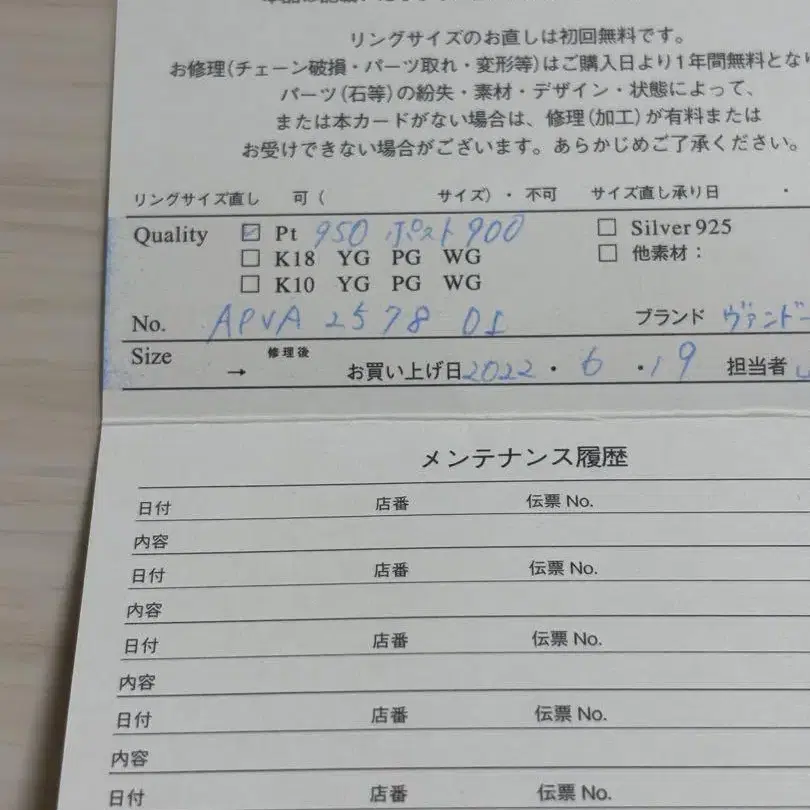 リングサイズのお直しは初回無料です。
お修理(チェーン破損・パーツ取れ・変形等)はご購入日より1年間無料とな
パーツ(石等)の紛失・素材・デザイン・状態によって、
または本カードがない場合は、修理(加工)が有料または
お受けできない場合がございます。あらかじめご了承ください。
リングサイズ直し 可( サイズ)・不可 サイズ直し承り日 ・
Quality ☑ Pt 950 ポスト900 □ Silver925
□ K18 YG PG WG □ 他素材:
□ K10 YG PG WG
No. APVA 2578 01 ブランド ヴァンドー
Size → 修理後 お買い上げ日 2022・6・19 担当者
メンテナンス履歴
日付 店番 伝票 No.
内容
日付 店番 伝票 No.
内容
日付 店番 伝票 No.
内容
日付 店番 伝票 No.
内容
日付 店番 伝票 No.